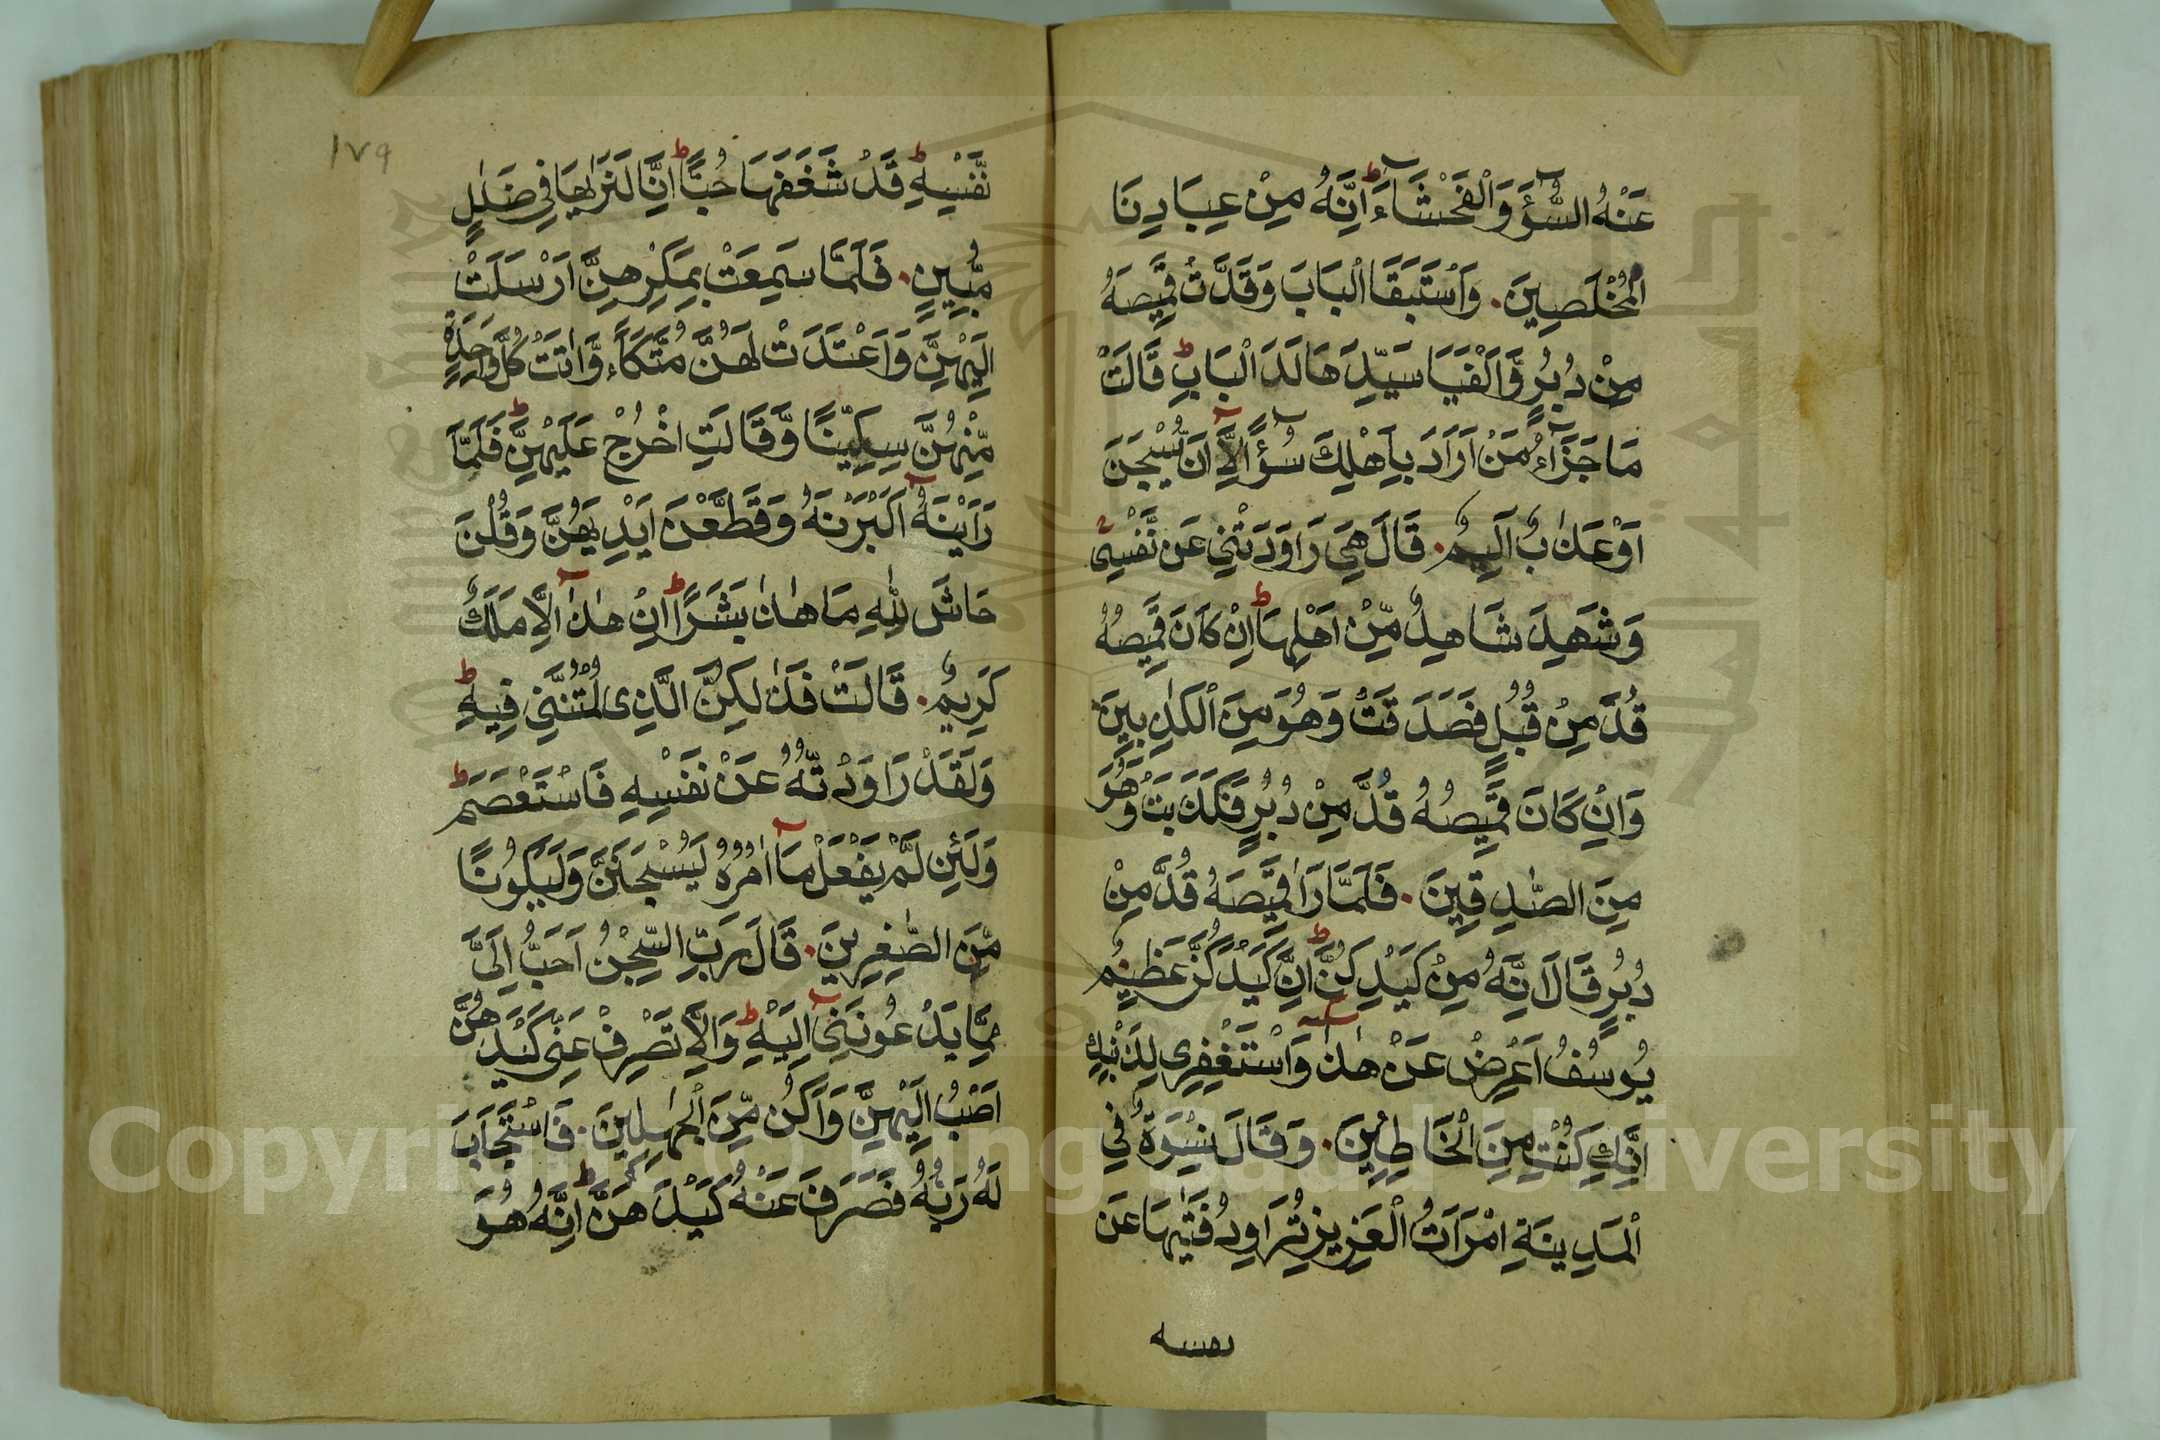 عَنْهُ السُّوْٓءَ وَالْفَحْشَآءَ ؕ اِنَّهٗ مِنْ عِبَادِنَا
الْمُخْلَصِيْنَ ۰ وَاسْتَبَقَا الْبَابَ وَقَدَّتْ قَمِيْصَهٗ
مِنْ دُبُرٍ وَّاَلْفَيَا سَيِّدَهَا لَدَا الْبَابِ ؕ قَالَتْ
مَا جَزَآءُ مَنْ اَرَادَ بِاَهْلِكَ سُوْٓءًا اِلَّآ اَنْ يُّسْجَنَ
اَوْ عَذَابٌ اَلِيْمٌ ۰ قَالَ هِيَ رَاوَدَتْنِيْ عَنْ نَّفْسِيْ
وَشَهِدَ شَاهِدٌ مِّنْ اَهْلِهَا ؕ اِنْ كَانَ قَمِيْصُهٗ
قُدَّ مِنْ قُبُلٍ فَصَدَقَتْ وَهُوَ مِنَ الْكٰذِبِيْنَ
وَاِنْ كَانَ قَمِيْصُهٗ قُدَّ مِنْ دُبُرٍ فَكَذَبَتْ وَهُوَ
مِنَ الصّٰدِقِيْنَ ۰ فَلَمَّا رَاٰ قَمِيْصَهٗ قُدَّ مِنْ
دُبُرٍ قَالَ اِنَّهٗ مِنْ كَيْدِكُنَّ ؕ اِنَّ كَيْدَكُنَّ عَظِيْمٌ
يُوْسُفُ اَعْرِضْ عَنْ هٰذَا وَاسْتَغْفِرِيْ لِذَنْۢبِكِ
اِنَّكِ كُنْتِ مِنَ الْخَاطِئِيْنَ ۰ وَقَالَ نِسْوَةٌ فِي
الْمَدِيْنَةِ امْرَاَتُ الْعَزِيْزِ تُرَاوِدُ فَتٰىهَا عَنْ
نفسه
١٧٩
نَّفْسِهٖ ؕ قَدْ شَغَفَهَا حُبًّا ؕ اِنَّا لَنَرٰىهَا فِيْ ضَلٰلٍ
مُّبِيْنٍ ۰ فَلَمَّا سَمِعَتْ بِمَكْرِهِنَّ اَرْسَلَتْ
اِلَيْهِنَّ وَاَعْتَدَتْ لَهُنَّ مُتَّكَاً وَّاٰتَتْ كُلَّ وَاحِدَةٍ
مِّنْهُنَّ سِكِّيْنًا وَّقَالَتِ اخْرُجْ عَلَيْهِنَّ ؕ فَلَمَّا
رَاَيْنَهٗٓ اَكْبَرْنَهٗ وَقَطَّعْنَ اَيْدِيَهُنَّ وَقُلْنَ
حَاشَ لِلّٰهِ مَا هٰذَا بَشَرًا ؕ اِنْ هٰذَآ اِلَّا مَلَكٌ
كَرِيْمٌ ۰ قَالَتْ فَذٰلِكُنَّ الَّذِي لُمْتُنَّنِي فِيْهِ ؕ
وَلَقَدْ رَاوَدْتُّهٗ عَنْ نَفْسِهٖ فَاسْتَعْصَمَ ؕ
وَلَئِنْ لَّمْ يَفْعَلْ مَآ اٰمُرُهٗ لَيُسْجَنَنَّ وَلَيَكُوْنًا
مِّنَ الصّٰغِرِيْنَ ۰ قَالَ رَبِّ السِّجْنُ اَحَبُّ اِلَيَّ
مِمَّا يَدْعُوْنَنِيْٓ اِلَيْهِ ؕ وَاِلَّا تَصْرِفْ عَنِّيْ كَيْدَهُنَّ
اَصْبُ اِلَيْهِنَّ وَاَكُنْ مِّنَ الْجٰهِلِيْنَ ۰ فَاسْتَجَابَ
لَهٗ رَبُّهٗ فَصَرَفَ عَنْهُ كَيْدَهُنَّ ؕ اِنَّهٗ هُوَ
Copyright © King Saud University